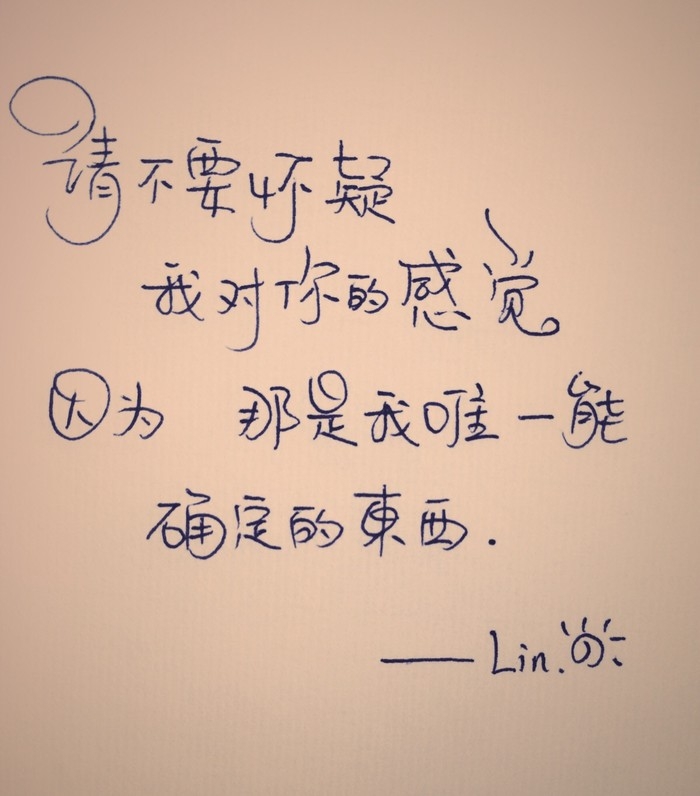 请不要怀疑
我对你的感觉。
因为 那是我唯一能
确定的東西.
—— Lin.